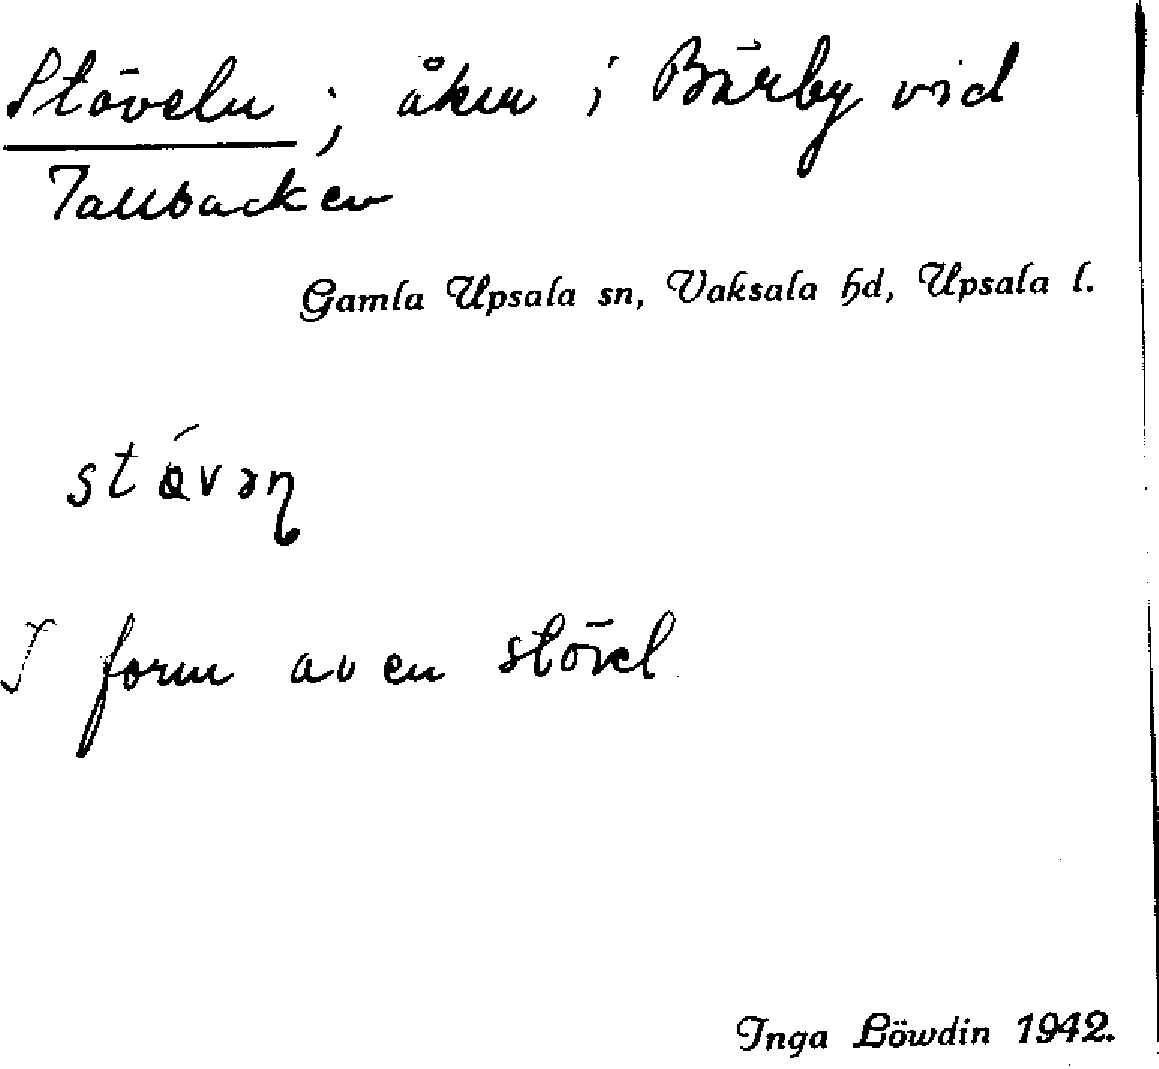 Stöveln ; åker i Bärby vid
Tallbacken
Gamla Upsala sn, Vaksala hd, Upsala l.
I form av en stövel
Inga Löwdin 1942.